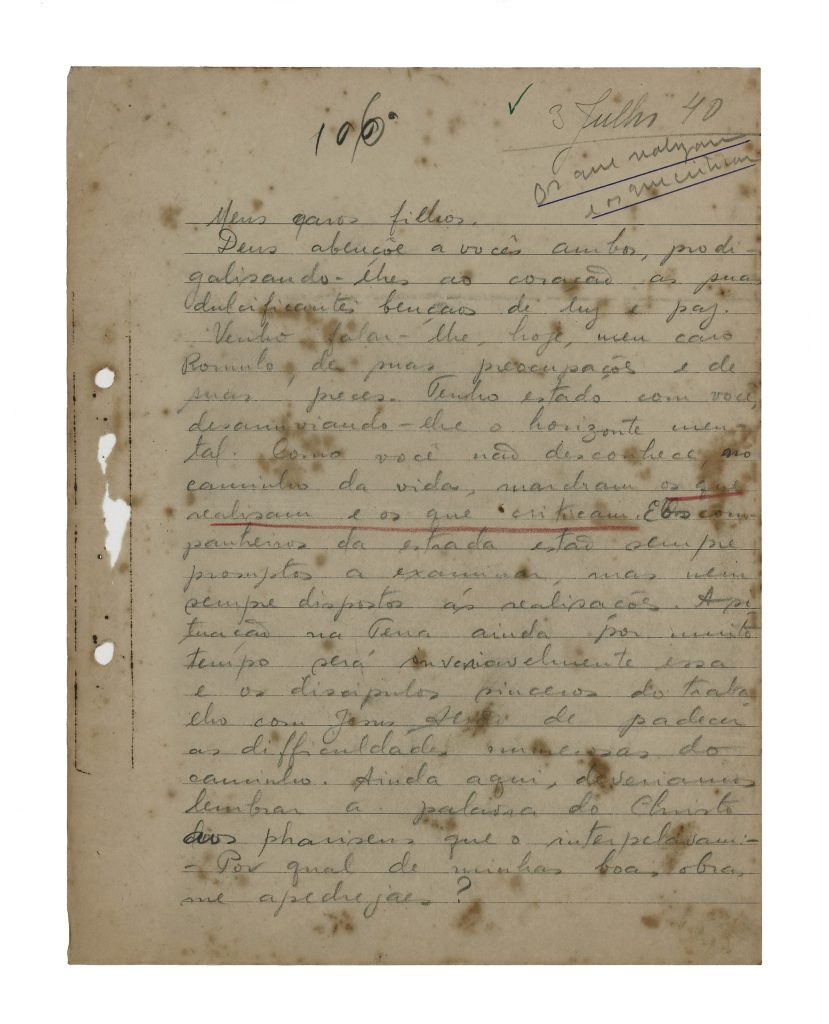 106º
3 Julho 40
Os que realizam
e os que criticam
Meus caros filhos.
Deus abençôe a vocês ambos, prodi-
galisando-lhes ao coração as suas
dulcificantes bençãos de luz e paz.
Venho falar-lhe, hoje, meu caro
Romulo, de suas preocupações e de
suas preces. Tenho estado com você,
desanuviando-lhe o horizonte men-
tal. Como você não desconhece, no
caminho da vida, marcham os que
realisam e os que criticam. Os com-
panheiros da estrada estão sempre
promptos a examinar, mas nem
sempre dispostos ás realisações. A si-
tuação na Terra ainda por muito
tempo será invariavelmente essa
e os discipulos sinceros do traba-
lho com Jesus terão de padecer
as difficuldades numerosas do
caminho. Ainda aqui, deveriamos
lembrar a palavra do Christo
aos phariseus que o interpelavam:-
- Por qual de minhas boas obras
me apedrejaes?